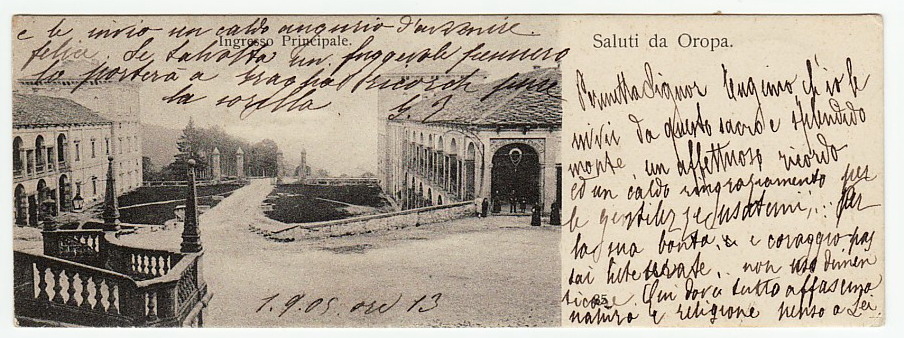 Saluti da Oropa.
Permetta Signor Eugenio ch'io le
invii da questo sacro e splendido
monte un affettuoso ricordo
ed un caldo ringraziamento per
le gentilezze usatemi,.. per
la sua bontà.. e coraggio
.. non
Qui dove tutto affascina
natura e religione penso a Lei
e le invio un caldo augurio d'avvenire
Ingresso Principale.
felice. Se talvolta un fuggevole pensiero
lo porterà a ricordi
la
1.9.05 ore 13